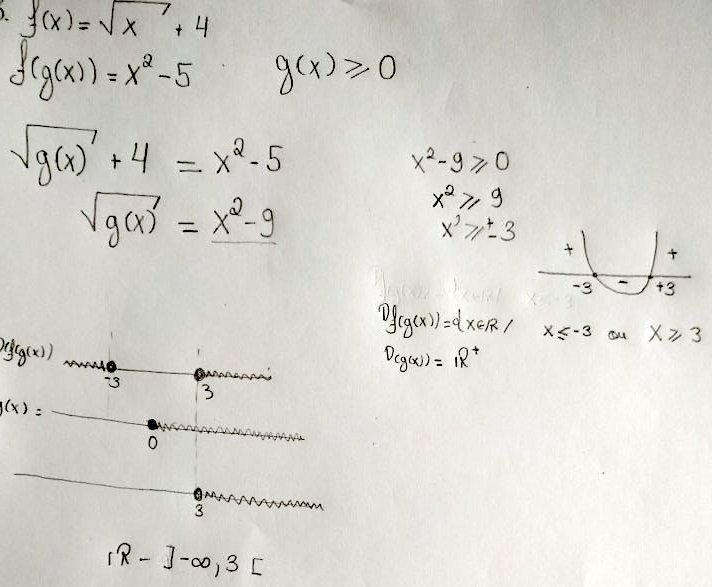 f(x) = √x + 4
f(g(x)) = x² - 5 g(x) ⩾ 0
√g(x) + 4 = x² - 5
√g(x) = x² - 9
x² - 9 ⩾ 0
x² ⩾ 9
x ⩾ ± 3
+ - +
-3 +3
Df(g(x)) = {x∈R / x ⩽ -3 ou x ⩾ 3
D(g(x)) = R⁺
Df(g(x))
-3 3
g(x) =
0
3
R - ]-∞, 3 [